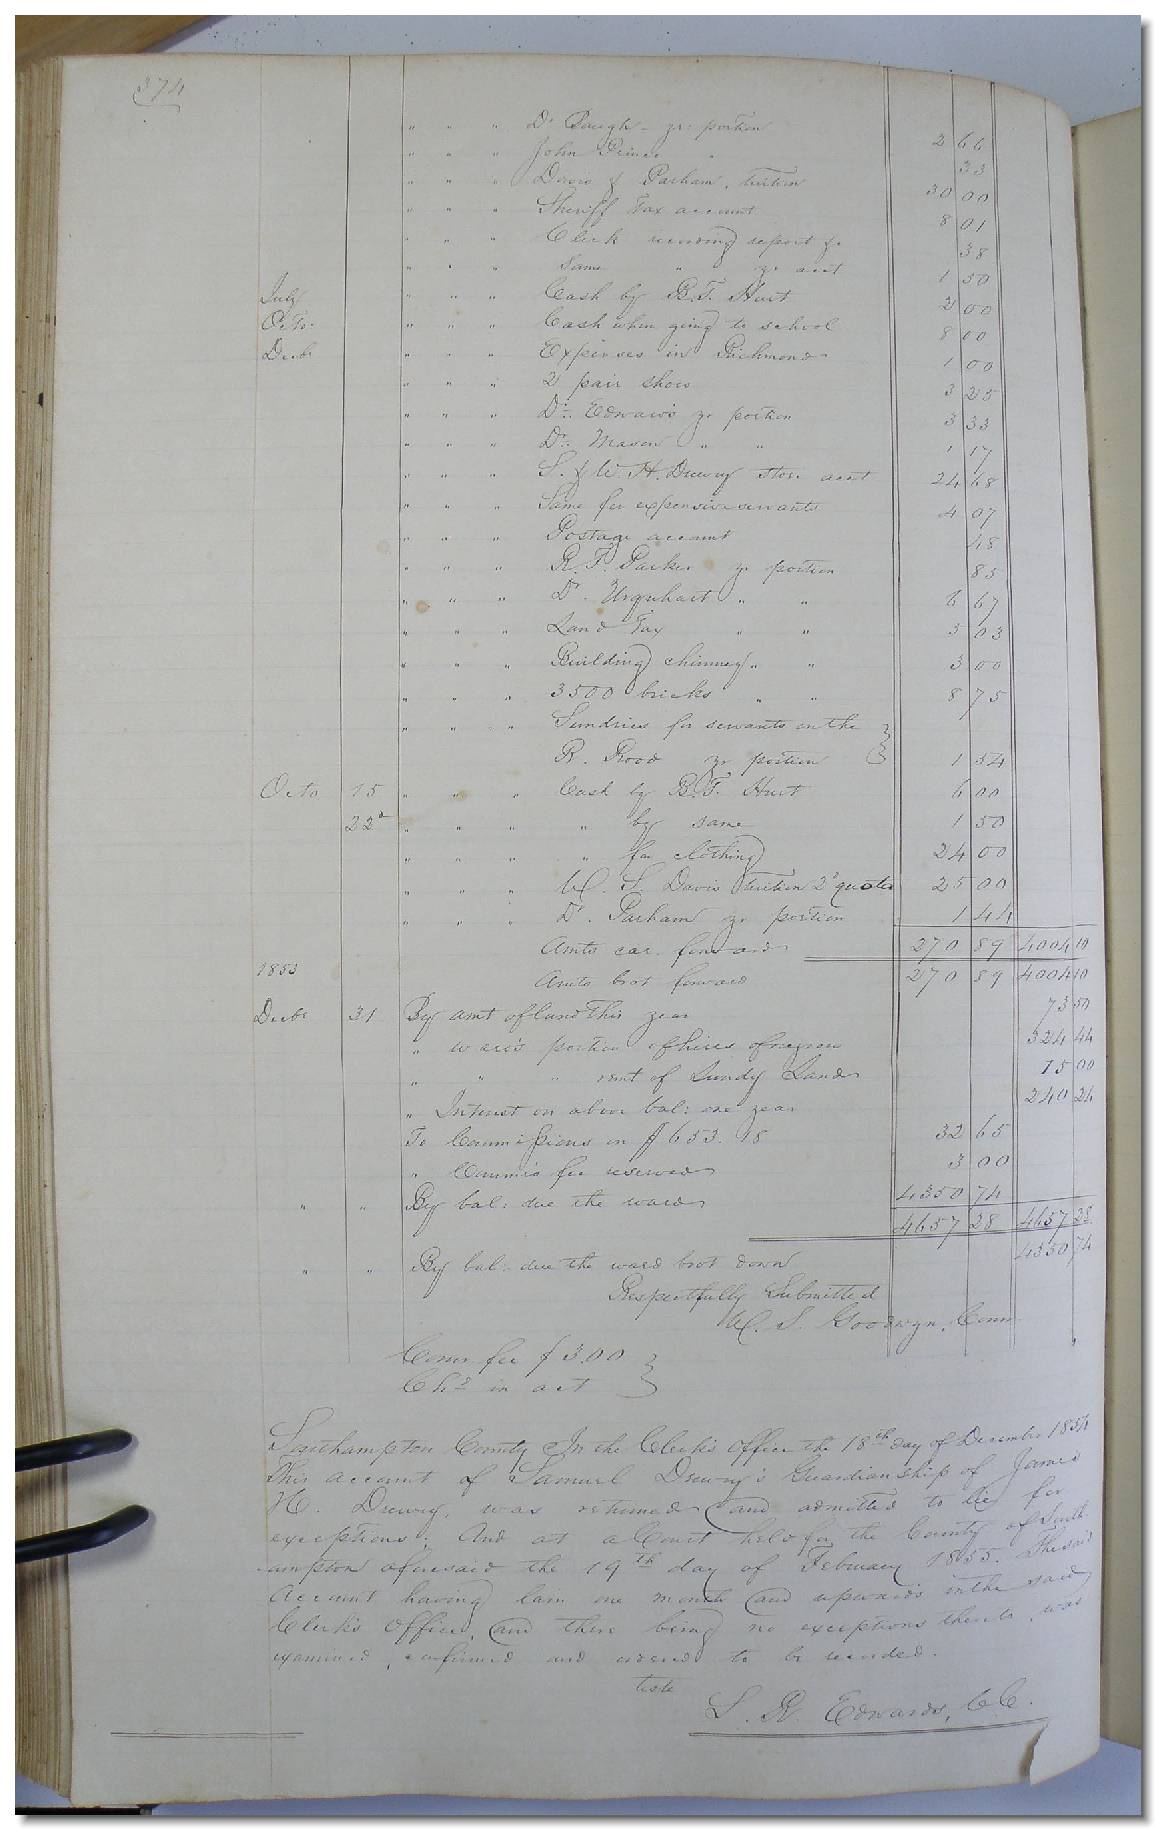 374
" " " Dr Baugh – yr: portion 2 66
" " " John Prince " 33
" " " Davis & Parham, tuition 30 00
" " " Sheriff Tax account 8 01
" " " Clerk recording report &c 38
" " " Same " yr acct 1 50
July " " " Cash by B. F. Hurt 2 00
Octo. " " " Cash when going to school 8 00
Decbr " " " Expenses in Richmond 1 00
" " " 2 pair shoes 3 25
" " " Dr. Edwards yr portion 3 33
" " " Dr. Mason " " 1 17
" " " S. & W. H. Drewry Store acct 24 68
" " " Same for expenses servants 4 07
" " " Postage account 48
" " " R. F. Parker yr portion 83
" " " Dr. Urquhart " " 6 67
" " " Land Tax " " 3 03
" " " Building chimney " " 3 00
" " " 3500 bricks " " 8 75
" " " Sundries for servants on the }
R. Road yr portion } 1 54
Octo 15 " " " Cash by B. F. Hurt 6 00
22d " " " " by same 1 50
" " " " for clothing 24 00
" " " W. S. Davis tuition 2d quarter 25 00
" " " Dr. Parham yr portion 1 44
Amts car. forward 270 89 4004 10
1853 Amts brot forward 270 89 4004 10
Decbr 31 By amt of land this year 73 50
" ward's portion of hires of negroes 324 44
" " " rent of Lundy Land 15 00
" Interest on above bal: one year 240 24
To Commissions on $653.18 32 65
" Comm's fee reserved 3 00
" " By bal: due the ward 4350 74
4657 28 4657 28
" " By bal: due the ward brot down 4350 74
Respectfully Submitted
W. S. Goodwyn, Comr
Comr fee $3.00 }
Chd in act }
Southampton County In the Clerk's Office the 18th day of December 1854
This account of Samuel Drewry's Guardianship of James
H. Drewry, was returned and admitted to lie for
exceptions; And at a Court held for the County of South-
ampton aforesaid the 19th day of February 1855. The said
Account having lain one month and upwards in the said
Clerk's Office, and there being no exceptions thereto, was
examined, confirmed and ordered to be recorded.
Teste
L. R. Edwards, C.C.